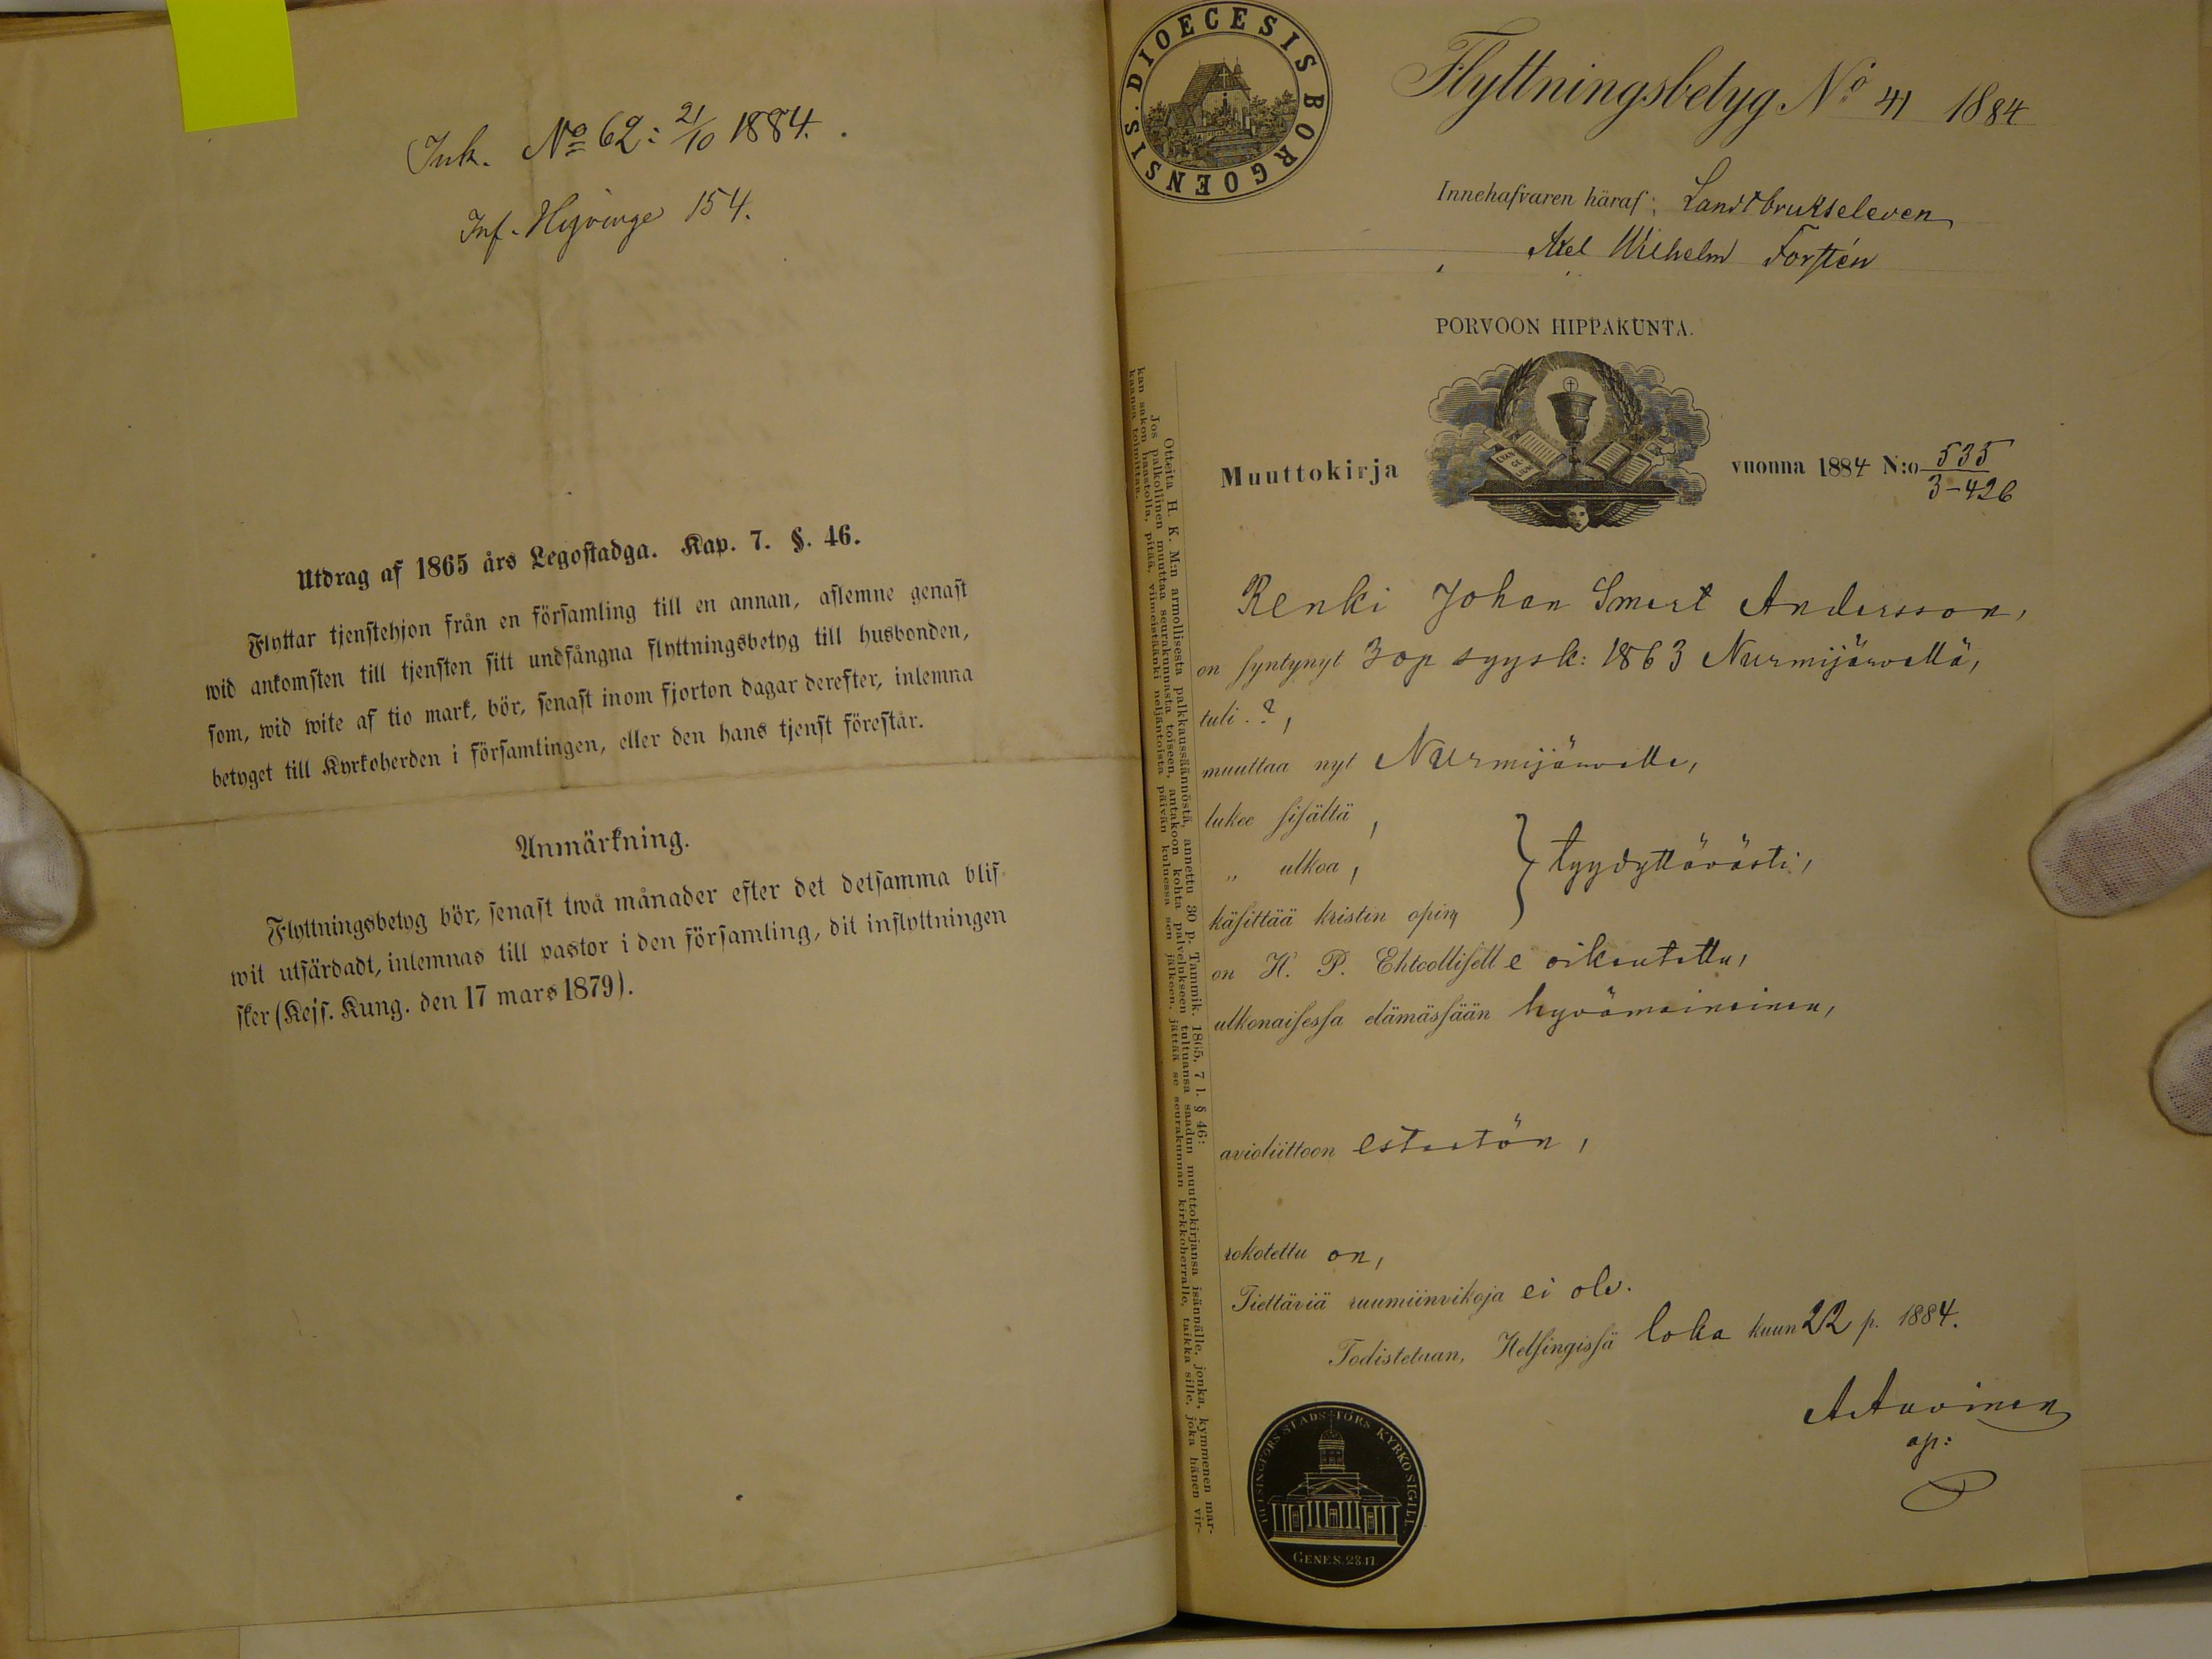 Ink. No 62: 21/10 1884.
Inf. Hyvinge 154.
Utdrag af 1865 års Legostadga. Kap. 7. §. 46.
Flyttar tjenstehjon från en församling till en annan, aflemne genast
wid ankomsten till tjensten sitt undfångna flyttningsbetyg till husbonden,
som, wid wite af tio mark, bör, senast inom fjorton dagar derefter, inlemna
betyget till Kyrkoherden i församlingen, eller den hans tjenst förestår.
Anmärkning.
Flyttningsbetyg bör, senast twå månader efter det detsamma blif-
wit utfärdadt, inlemnas till pastor i den församling, dit inflyttningen
sker (Kejs. Kung. den 17 mars 1879).
DIOECESIS BORGOENSIS.
Flyttningsbetyg No 41 1884
Innehafvaren häraf: Landtbrukseleven
Axel Wilhelm Forstén
PORVOON HIPPAKUNTA.
EVAN GE LIUM
Muuttokirja vuonna 1884 N:o 535
3-426
Renki Johan Andersson,
on syntynyt 3 op syysk: 1863 Nurmijärvellä,
tuli . ?,
muuttaa nyt Nurmijärvelle,
lukee sisältä,
„ ulkoa,
tyydyttävästi,
käsittää kristin opin,
on H. P. Ehtoollisell e oikeutettu,
ulkonaisessa elämässään hyvämaineinen,
avioliittoon esteetön,
rokotettu on,
Tiettäviä ruumiinvikoja ei ole.
Todistetaan, Helsingissä loka kuun 22 p. 1884.
A Auvinen
ap:
HELSINGFORS STADS TÖRS KYRKO SIGILL.
GENES. 28.17
Otteita H. K. M:n armollisesta palkkaussäännöstä, annettu 30 p. Tammik. 1865, 7 l. § 46:
Jos palkollinen muuttaa seurakunnasta toiseen, antakoon kohta palvelukseen tultuansa saadun muuttokirjansa isännälle, jonka, kymmenen mar-
kan sakon haastolla, pitää, viimeistäänki neljäntoista päivän kuluessa sen jälkeen, jättää se seurakunnan kirkkoherralle, taikka sille, joka hänen vir-
kaansa toimittaa.